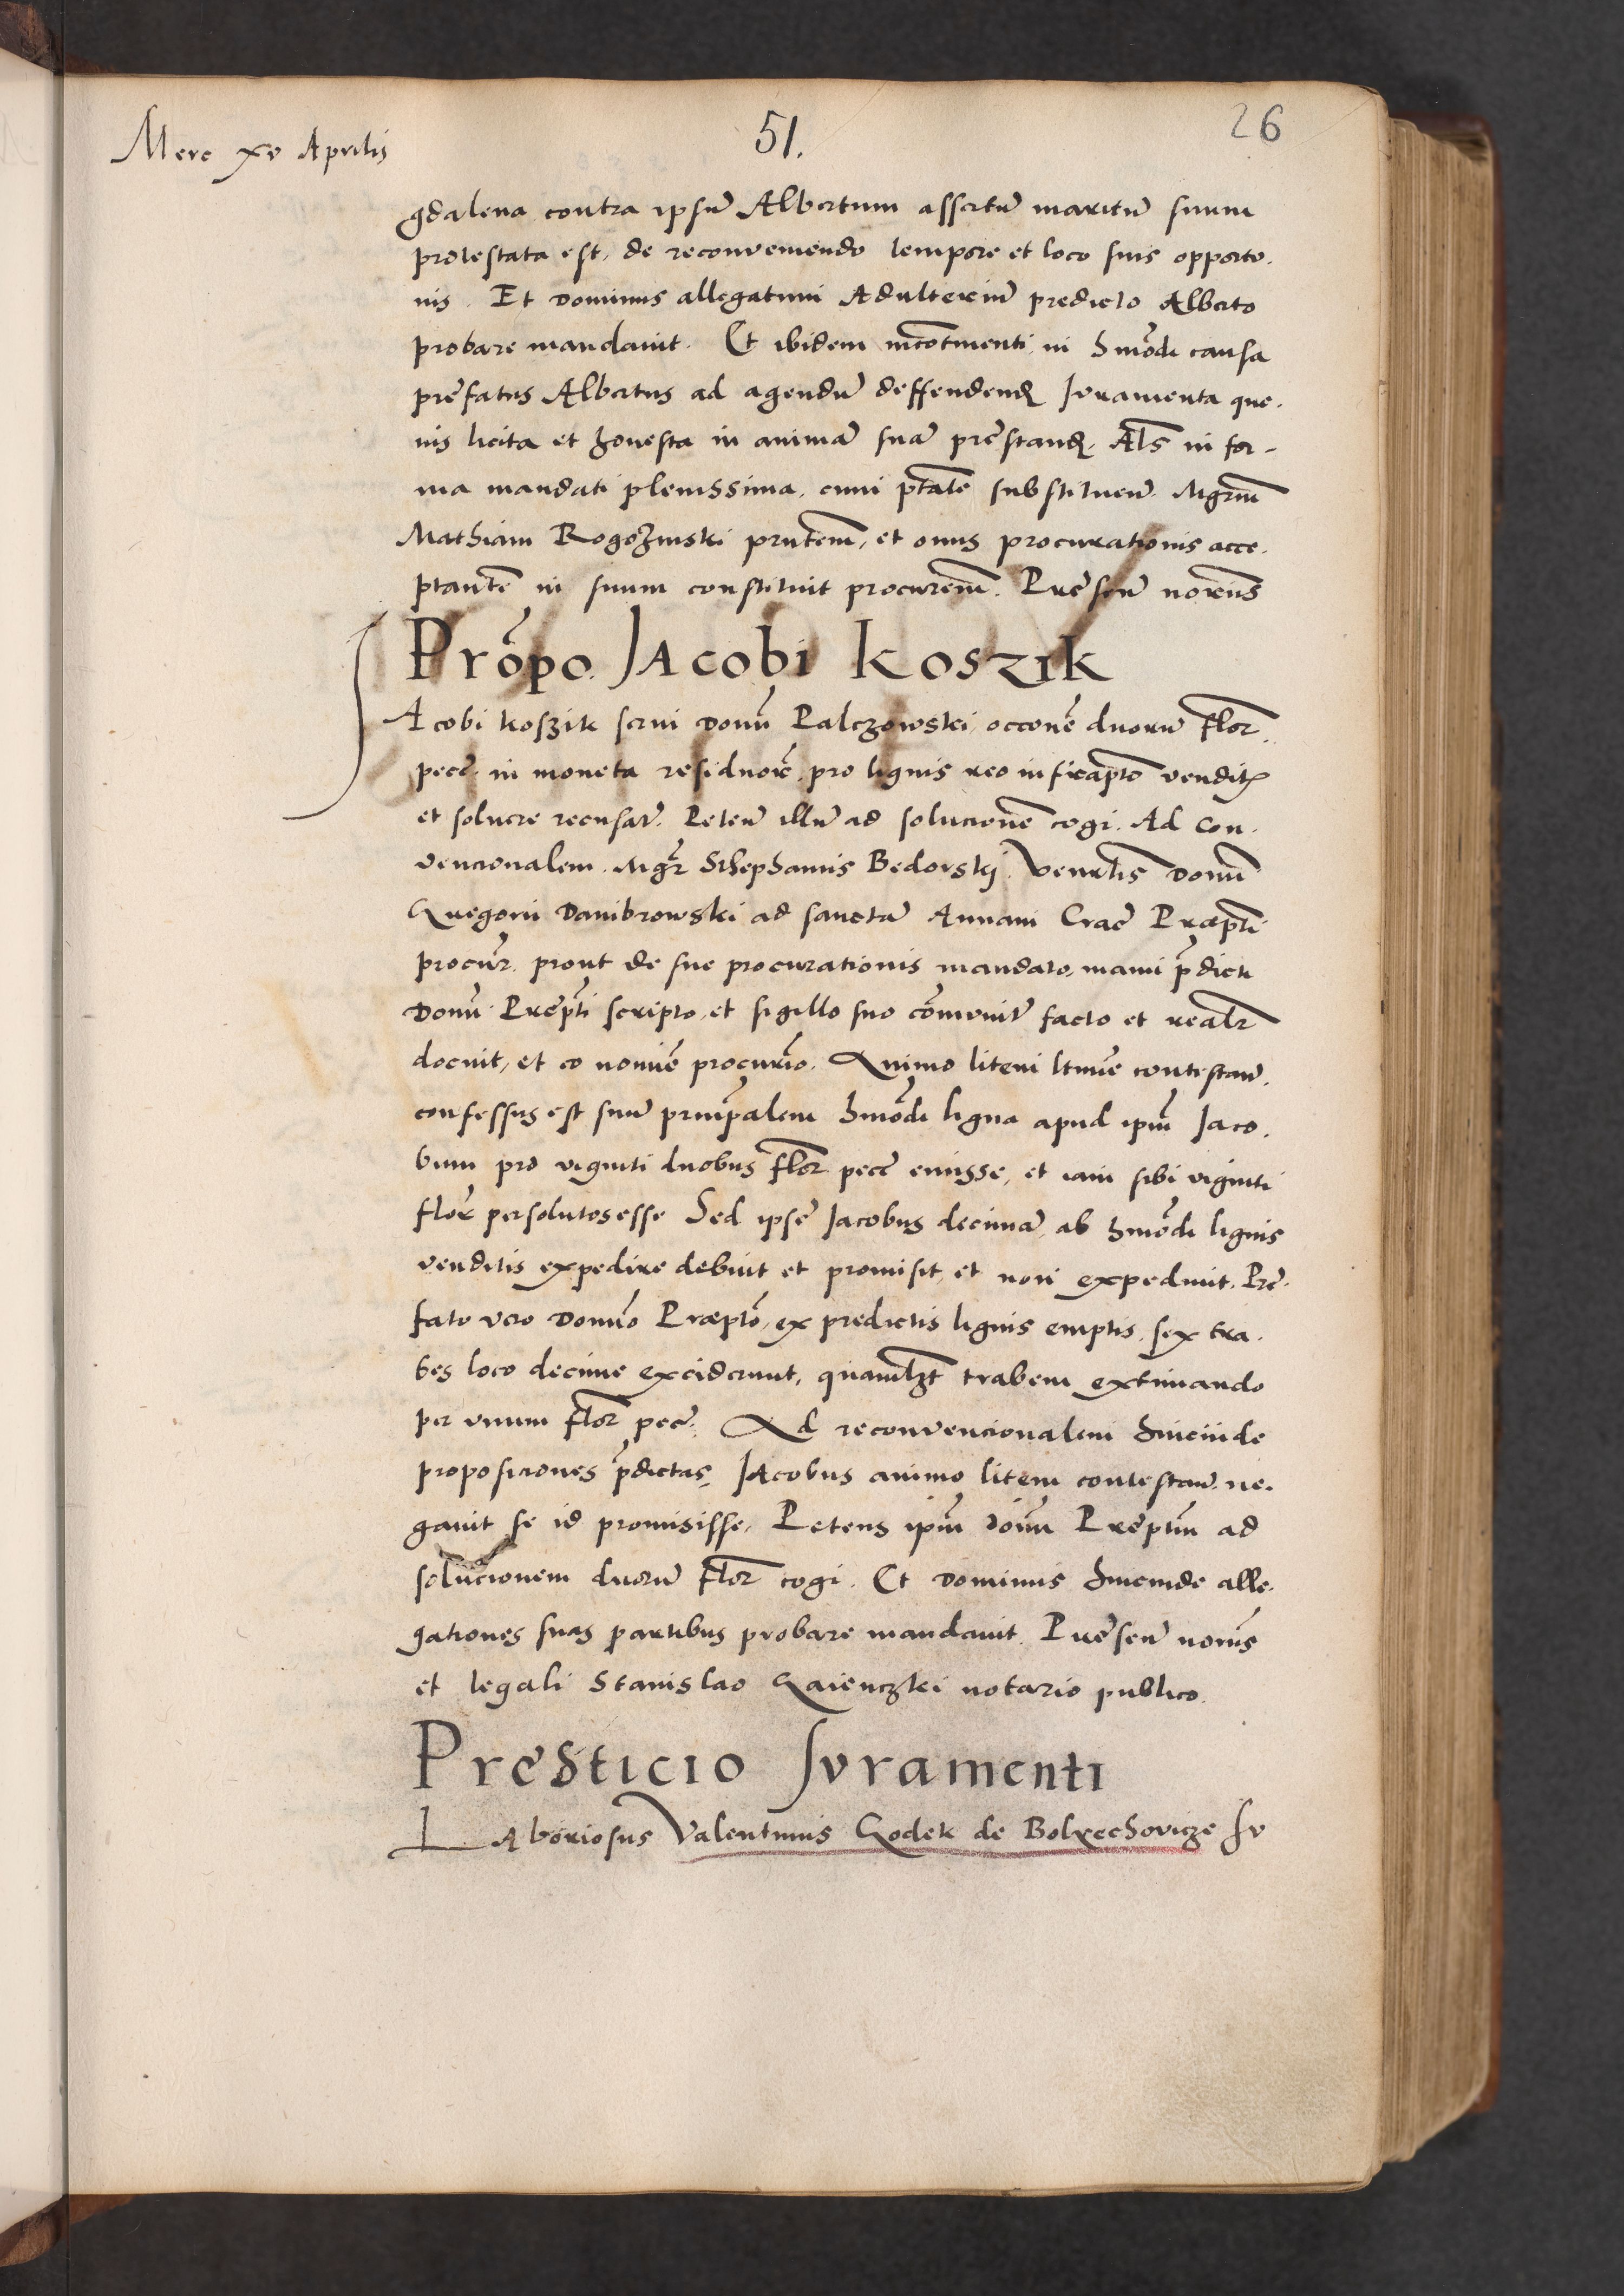 Merc xv Aprilis
51.
26
gdalena contra ipsū Albertum assertū maritū suum
protestata est, de reconveniendo tempore et loco suis opporto.
nis. Et Dominus allegatum Adulteriū predicto Alberto
probare mandavit. Et ibidem incōtinenti in hmōdi causa
prefatus Albertus ad agendū deffendend Juramenta que.
vis licita et honesta in animā suā prestand. Als in for-
ma mandati plenissima, cum ptāte substituen̄ Mgrum
Mathiam Rogozinski pntem, et onus procurationis acce.
ptantē in suum constituit procurem. Presen̄ noriis
Propō Jacobi Koszik
Jacobi Koszik servi Domī Palczowski, occonē duorū flor
pecc̄ in moneta residuorū, pro lignis reo infrapto vendit
et solvere recusat̄. Peten̄ illū ad solucionē cogi. Ad con.
vencionalem Mgr Sthephanus Bedorskj Venlis Domī
Gregorii Dambrowski ad sanctā Annam Crac̄ Prepti
procur̄ prout de sue procurationis mandato, manu pdicti
Domī Prepti scripto, et sigillo suo cōmunit̄ facto et realr
docuit, et eo nomīe procurio. Animo litem ltime contestan̄.
confessus est suū principalem hmōdi ligna apud ipm Jaco.
bum pro viginti duobus flor pecc̄ emisse, et iam sibi viginti
flor̄ persolutos esse Sed ipse Jacobus decimā ab hmōdi lignis
venditis expedire debuit et promisit, et non expedivit. Pre.
fato vero Domīo Prepto, ex predictis lignis emptis, sex tra.
bes loco decime exciderunt, quamlzt trabem extimando
per unum flor pecc̄. Ad reconvencionalem hincinde
propositiones pdictas, Jacobus animo litem contestan̄ ne.
gavit se id promisisse, Petens ipm dom Preptum ad
solucionem duorū flor cogi. Et Dominus hincinde alle.
gationes suas partibus probare mandavit. Presen̄ noriis
et legali Stanislao Gaienczki notario publico.
Presticio Juramenti
Laboriosus Valentinus Godek de Bolechovicze Ju